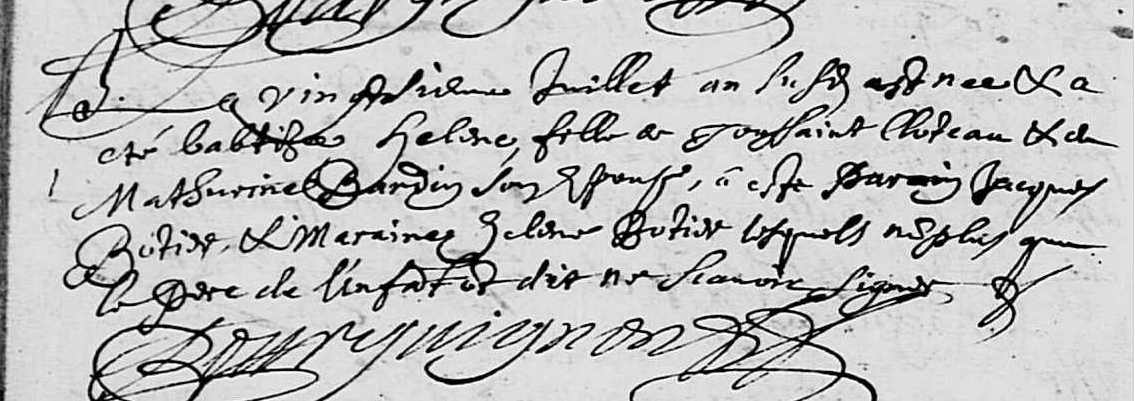 Le vingtsixieme Juillet an susd est nee & a
eté babtisee Helene, fille de Toussaint Cloteau & de
Mathurine Bardin son Espouse, a esté Parain Jacques
Botier, & Maraine Helene Botier lesquels non plus que
le Pere de l'enfant ont dit ne scavoir signer
Bourguignon